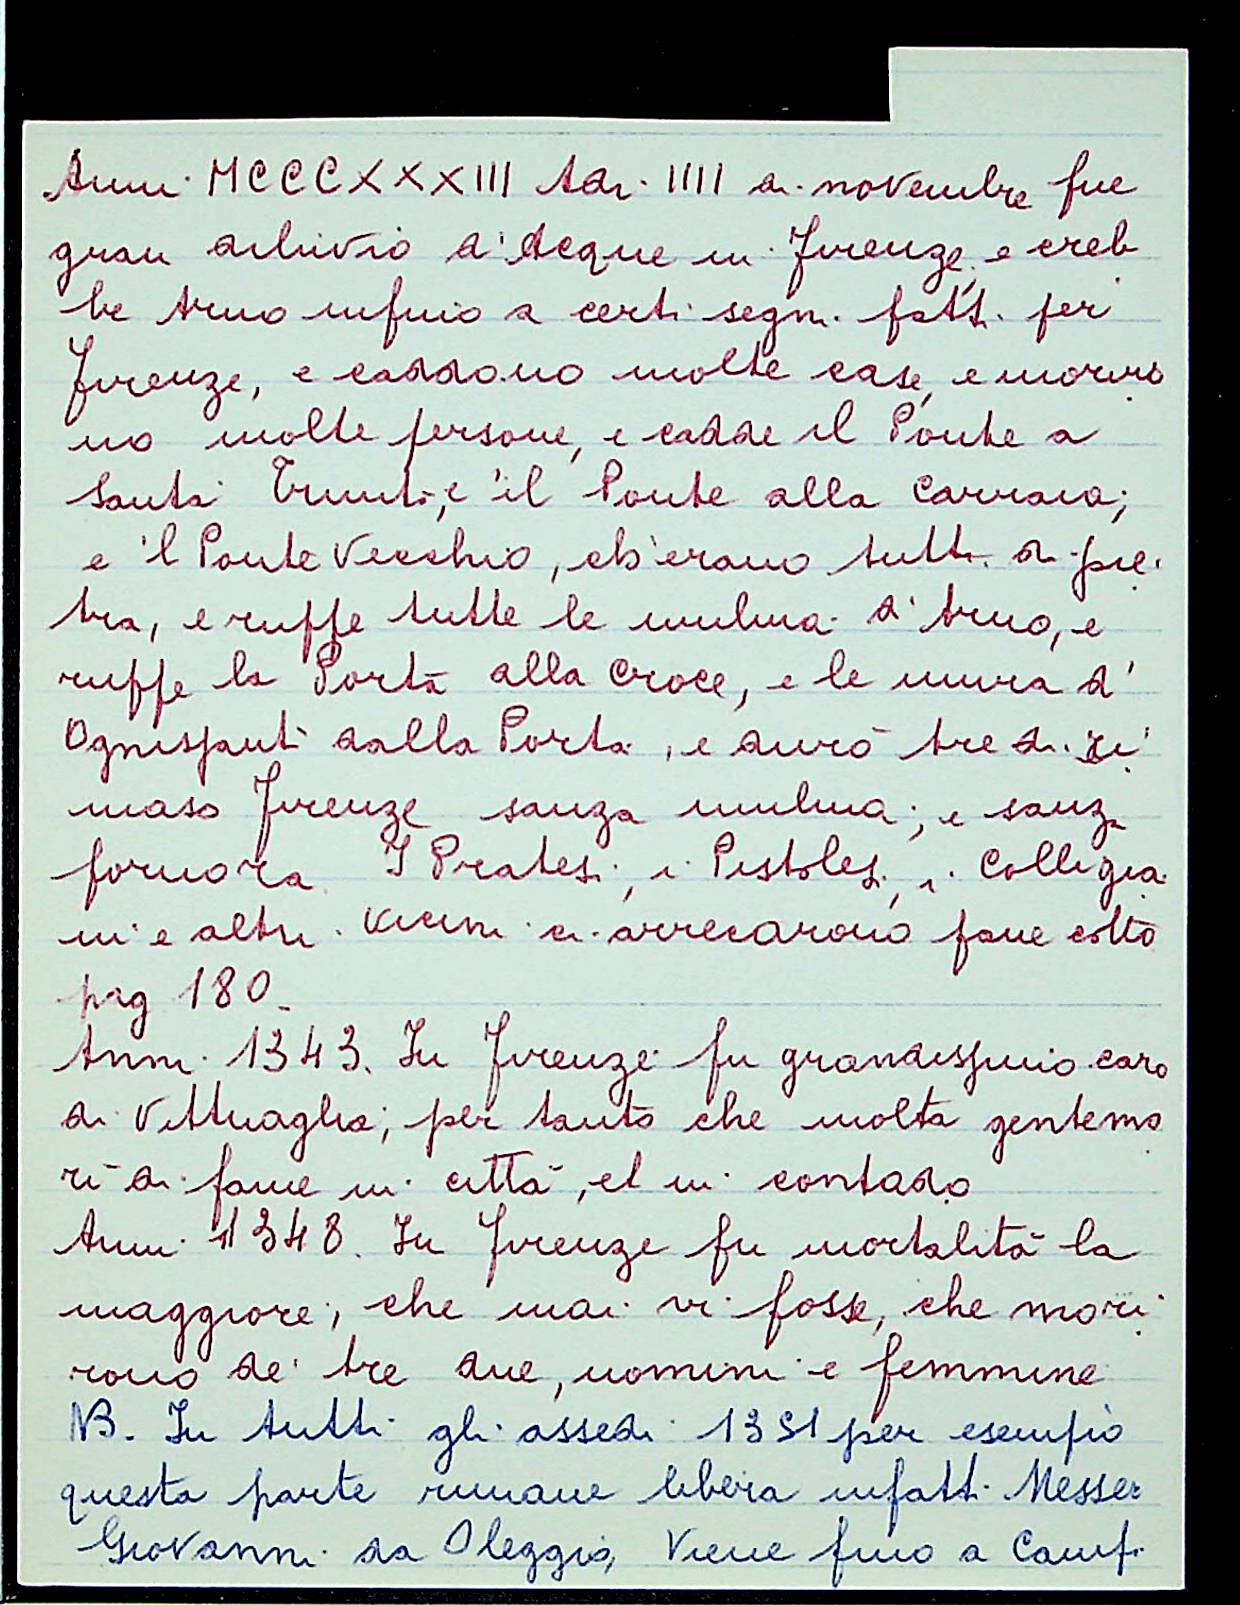 Anni MCCCXXXIII Adi IIII di novembre fue
gran diluvio d'Acque in Firenze, e creb
be Arno infino a certi segni fatti per
Firenze, e caddono molte case, e moriro
no molte persone, e cadde il Ponte a
Santa Trinita, e 'il Ponte alla Carraia;
e 'l Ponte Vecchio, ch'erano tutti di pie
tra, e ruppe tutte le mulina d'Arno, e
ruppe la Porta alla Croce, e le mura d'
Ognissanti dalla Porta, e durò tre di ri
maso Firenze sanza mulina; e sanza
fornora I Pratesi, i Pistolesi, i Colligia
ni e altri vicini ci arrecarono pane cotto
pag 180_
Anni 1343. In Firenze fu grandissimo caro
di Vittuaglia; per tanto che molta gente mo
rì di fame in città, et in contado
Anni 1348. In Firenze fu mortalità la
maggiore, che mai vi fosse, che mori
rono de' tre due, uomini e femmine
NB. In tutti gli assedi 1351 per esempio
questa parte rimane libera infatti Messer
Giovanni da Oleggio, Viene fino a Campi